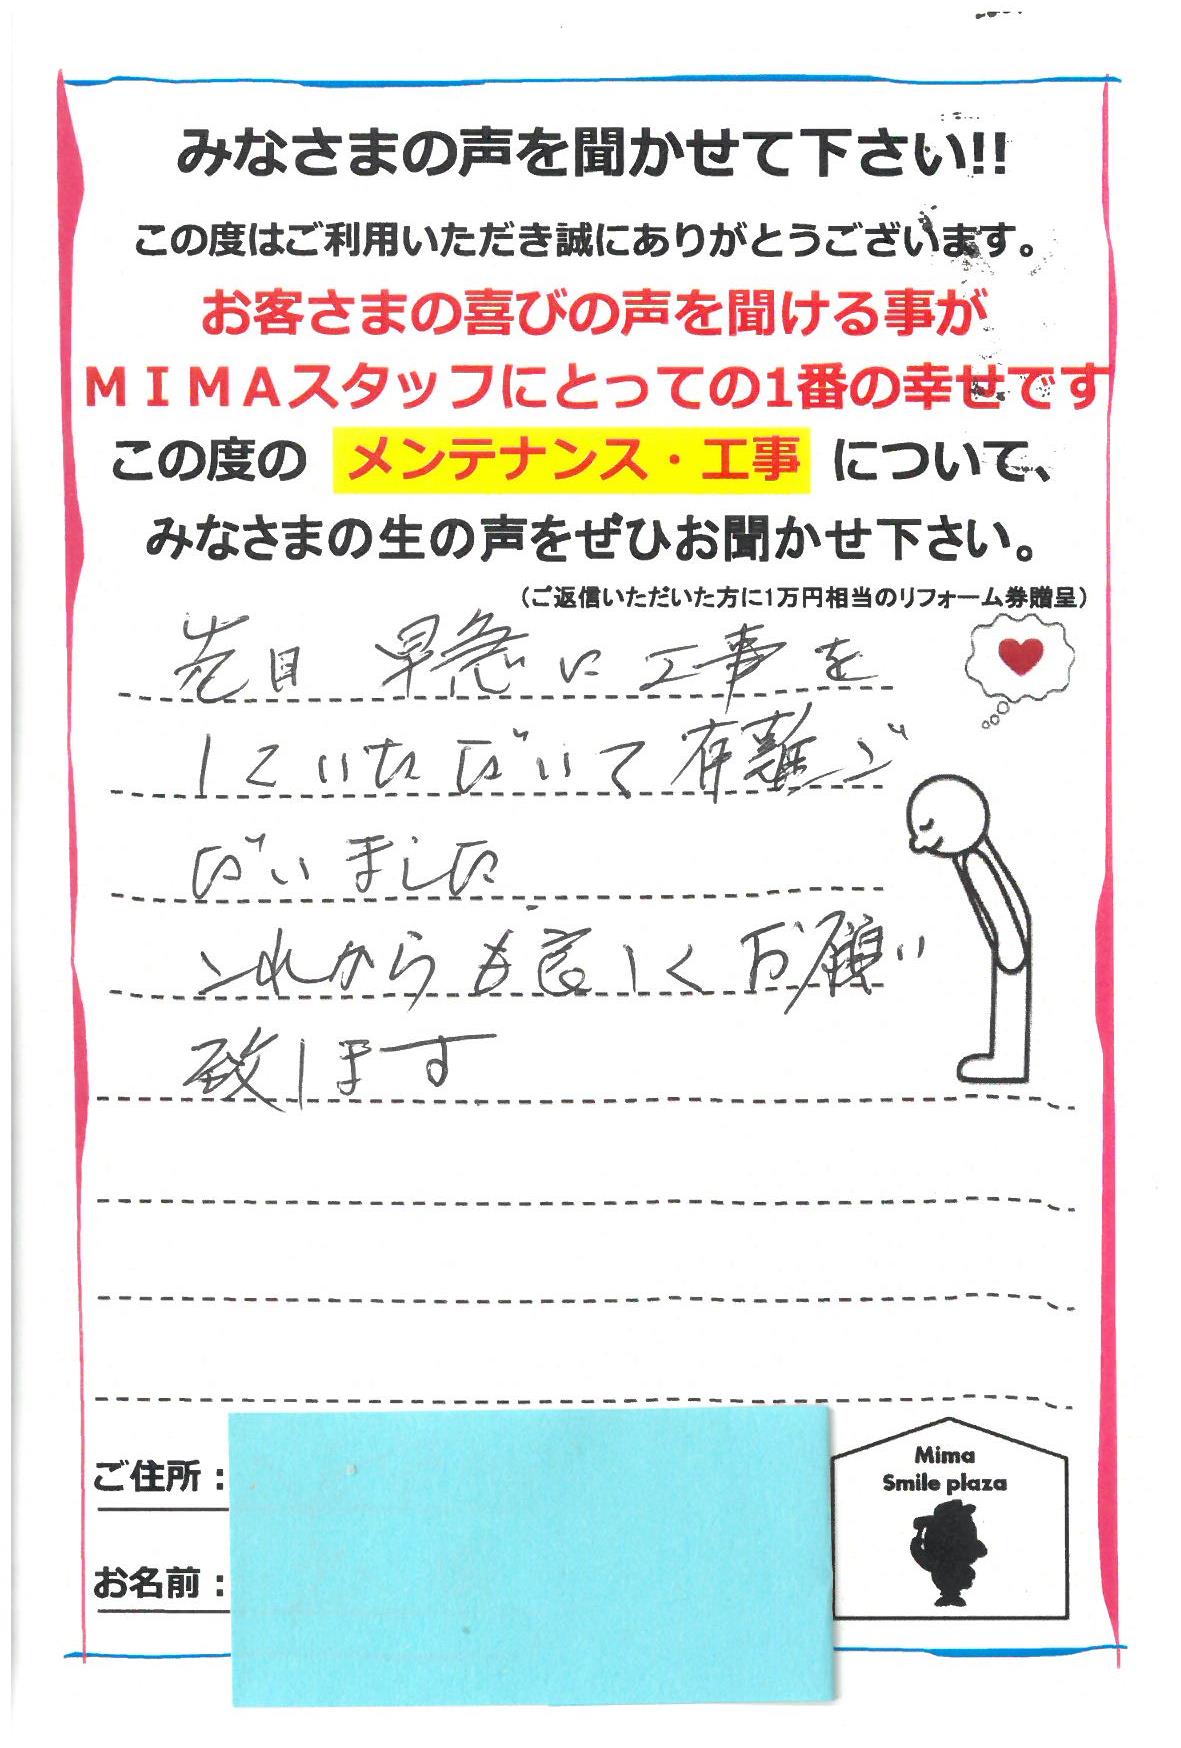 みなさまの声を聞かせて下さい!!
この度はご利用いただき誠にありがとうございます。
お客さまの喜びの声を聞ける事が
ＭＩＭＡスタッフにとっての1番の幸せです
この度の メンテナンス・工事 について、
みなさまの生の声をぜひお聞かせ下さい。
（ご返信いただいた方に1万円相当のリフォーム券贈呈）
先日 早急に工事を
していただいて有難ご
ざいました
これからも宜しくお願い
致します
Mima
Smile plaza
ご住所：
お名前：